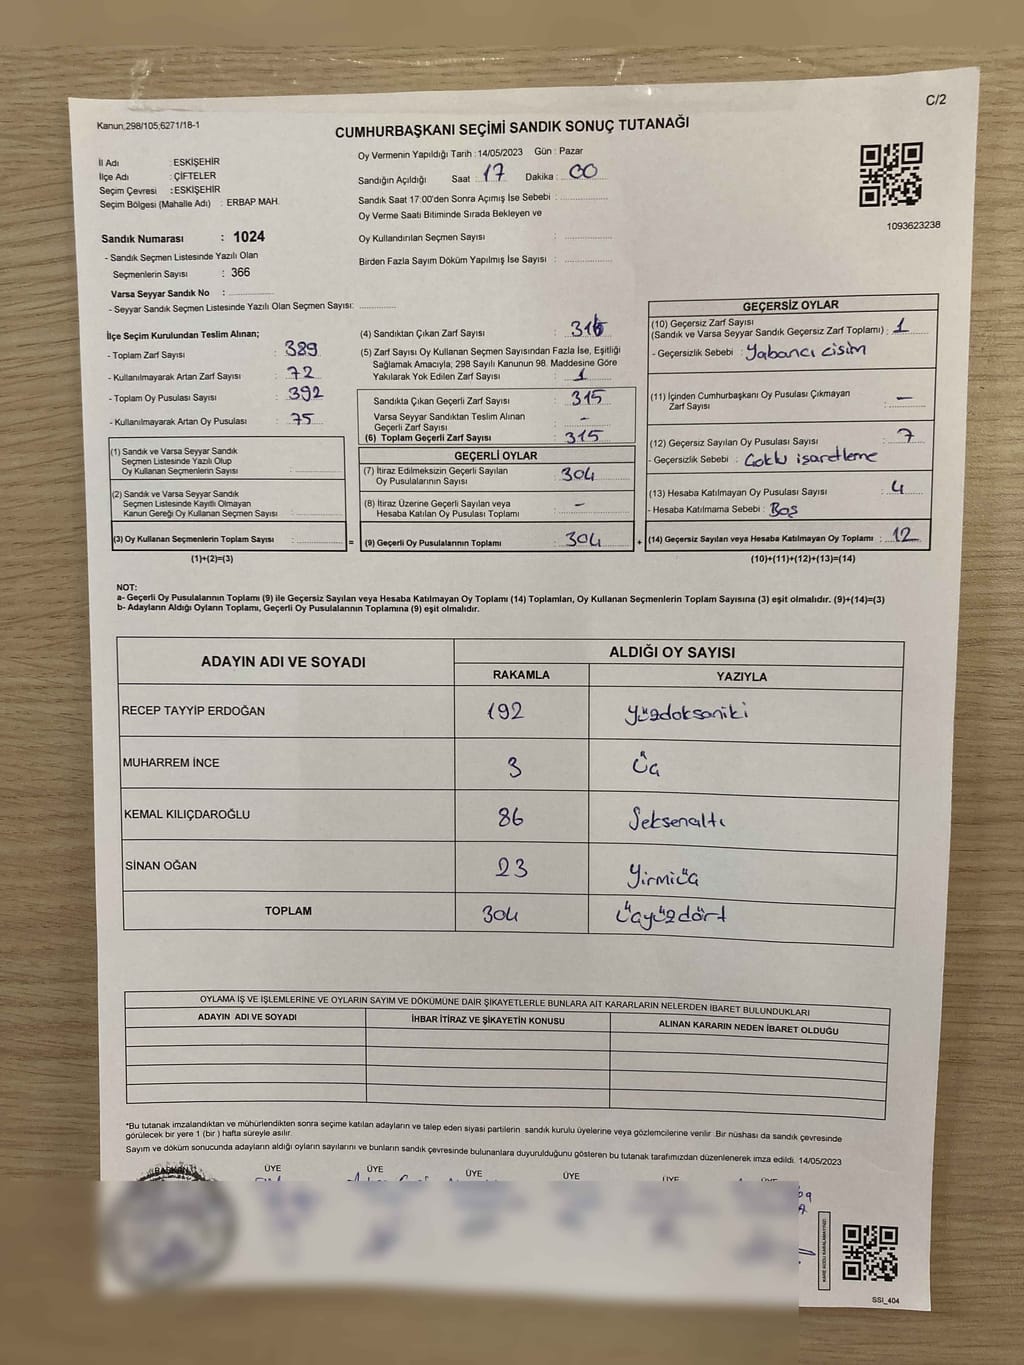 C/2
Kanun,298/105;6271/18-1
CUMHURBAŞKANI SEÇİMİ SANDIK SONUÇ TUTANAĞI
İl Adı : ESKİŞEHİR
İlçe Adı : ÇİFTELER
Seçim Çevresi : ESKİŞEHİR
Seçim Bölgesi (Mahalle Adı) : ERBAP MAH.
Oy Vermenin Yapıldığı Tarih : 14/05/2023 Gün : Pazar
Sandığın Açıldığı Saat : 17 Dakika : 00
Sandık Saat 17:00'den Sonra Açımış İse Sebebi :
Oy Verme Saati Bitiminde Sırada Bekleyen ve
Oy Kullandırılan Seçmen Sayısı :
Birden Fazla Sayım Döküm Yapılmış İse Sayısı :
1093623238
Sandık Numarası : 1024
- Sandık Seçmen Listesinde Yazılı Olan
Seçmenlerin Sayısı : 366
Varsa Seyyar Sandık No :
- Seyyar Sandık Seçmen Listesinde Yazılı Olan Seçmen Sayısı:
İlçe Seçim Kurulundan Teslim Alınan;
- Toplam Zarf Sayısı : 389
- Kullanılmayarak Artan Zarf Sayısı : 72
- Toplam Oy Pusulası Sayısı : 392
- Kullanılmayarak Artan Oy Pusulası : 75
(1) Sandık ve Varsa Seyyar Sandık
Seçmen Listesinde Yazılı Olup
Oy Kullanan Seçmenlerin Sayısı :
(2) Sandık ve Varsa Seyyar Sandık
Seçmen Listesinde Kayıtlı Olmayan
Kanun Gereği Oy Kullanan Seçmen Sayısı :
(3) Oy Kullanan Seçmenlerin Toplam Sayısı : =
(1)+(2)=(3)
(4) Sandıktan Çıkan Zarf Sayısı : 316
(5) Zarf Sayısı Oy Kullanan Seçmen Sayısından Fazla İse, Eşitliği
Sağlamak Amacıyla, 298 Sayılı Kanunun 98. Maddesine Göre
Yakılarak Yok Edilen Zarf Sayısı : 1
Sandıkta Çıkan Geçerli Zarf Sayısı : 315
Varsa Seyyar Sandıktan Teslim Alınan
Geçerli Zarf Sayısı : –
(6) Toplam Geçerli Zarf Sayısı : 315
GEÇERLİ OYLAR
(7) İtiraz Edilmeksizin Geçerli Sayılan
Oy Pusulalarının Sayısı : 304
(8) İtiraz Üzerine Geçerli Sayılan veya
Hesaba Katılan Oy Pusulası Toplamı : –
(9) Geçerli Oy Pusulalarının Toplamı : 304 +
GEÇERSİZ OYLAR
(10) Geçersiz Zarf Sayısı
(Sandık ve Varsa Seyyar Sandık Geçersiz Zarf Toplamı) : 1
- Geçersizlik Sebebi : Yabancı cisim
(11) İçinden Cumhurbaşkanı Oy Pusulası Çıkmayan
Zarf Sayısı : –
(12) Geçersiz Sayılan Oy Pusulası Sayısı : 7
- Geçersizlik Sebebi : Çoklu işaretleme
(13) Hesaba Katılmayan Oy Pusulası Sayısı : 4
- Hesaba Katılmama Sebebi : Boş
(14) Geçersiz Sayılan veya Hesaba Katılmayan Oy Toplamı : 12
(10)+(11)+(12)+(13)=(14)
NOT:
a- Geçerli Oy Pusulalarının Toplamı (9) ile Geçersiz Sayılan veya Hesaba Katılmayan Oy Toplamı (14) Toplamları, Oy Kullanan Seçmenlerin Toplam Sayısına (3) eşit olmalıdır. (9)+(14)=(3)
b- Adayların Aldığı Oyların Toplamı, Geçerli Oy Pusulalarının Toplamına (9) eşit olmalıdır.
ADAYIN ADI VE SOYADI ALDIĞI OY SAYISI
RAKAMLA YAZIYLA
RECEP TAYYİP ERDOĞAN 192 Yüzdoksaniki
MUHARREM İNCE 3 Üç
KEMAL KILIÇDAROĞLU 86 Seksenaltı
SİNAN OĞAN 23 Yirmiüç
TOPLAM 304 Üçyüzdört
OYLAMA İŞ VE İŞLEMLERİNE VE OYLARIN SAYIM VE DÖKÜMÜNE DAİR ŞİKAYETLERLE BUNLARA AİT KARARLARIN NELERDEN İBARET BULUNDUKLARI
ADAYIN ADI VE SOYADI İHBAR İTİRAZ VE ŞİKAYETİN KONUSU ALINAN KARARIN NEDEN İBARET OLDUĞU
*Bu tutanak imzalandıktan ve mühürlendikten sonra seçime katılan adayların ve talep eden siyasi partilerin sandık kurulu üyelerine veya gözlemcilerine verilir. Bir nüshası da sandık çevresinde
görülecek bir yere 1 (bir) hafta süreyle asılır.
Sayım ve döküm sonucunda adayların aldığı oyların sayılarını ve bunların sandık çevresinde bulunanlara duyurulduğunu gösteren bu tutanak tarafımızdan düzenlenerek imza edildi. 14/05/2023
BAŞKAN ÜYE ÜYE ÜYE ÜYE ÜYE ÜYE
SSI_404